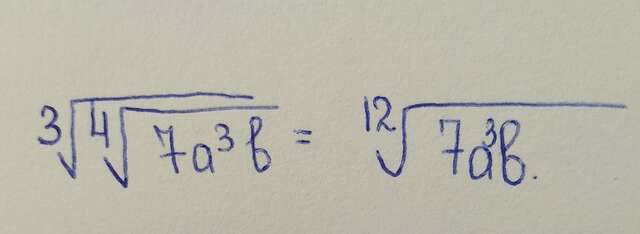 ∛(∜(7a³b)) = ¹²√(7a³b).